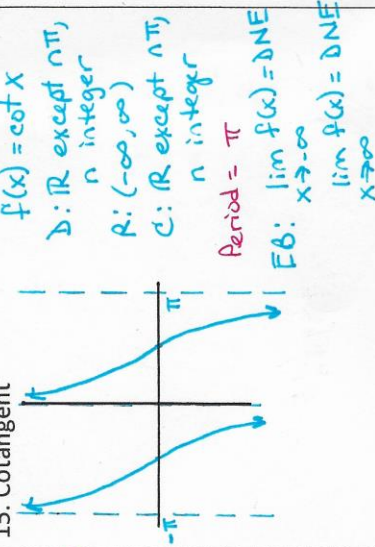 13. Cotangent
-π
π
f(x) = cot x
D: ℝ except nπ,
n integer
R: (-∞, ∞)
C: ℝ except nπ,
n integer
Period = π
EB: lim f(x) = DNE
x→-∞
lim f(x) = DNE
x→∞